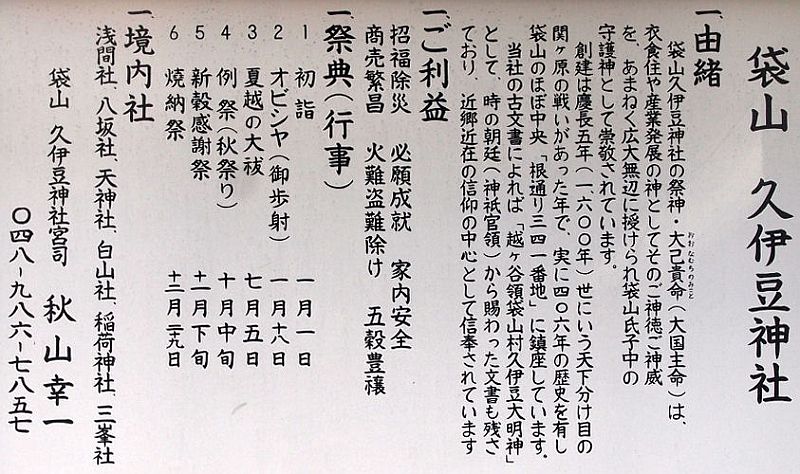 袋山 久伊豆神社
一、由緒
袋山久伊豆神社の祭神・大己貴命(大国主命)は、
おおなむちのみこと
衣食住や産業発展の神としてそのご神徳ご神威
を、あまねく広大無辺に授けられ袋山氏子中の
守護神として崇敬されています。
創建は慶長五年(一六〇〇年)世にいう天下分け目の
関ヶ原の戦いがあった年で、実に四〇六年の歴史を有し
袋山のほぼ中央「根通り三四一番地」に鎮座しています。
当社の古文書によれば「越ヶ谷領袋山村久伊豆大明神」
として、時の朝廷(神祇官領)から賜わった文書も残さ
ており、近郷近在の信仰の中心として信奉されています
一、ご利益
招福除災 必願成就 家内安全
商売繁昌 火難盗難除け 五穀豊穣
一、祭典(行事)
1 初詣 一月一日
2 オビシヤ(御歩射) 一月十八日
3 夏越の大祓 七月五日
4 例祭(秋祭り) 十月中旬
5 新穀感謝祭 十一月下旬
6 焼納祭 十二月二十九日
一、境内社
浅間社、八坂社、天神社、白山社、稲荷神社、三峯社
袋山 久伊豆神社宮司 秋山幸一
〇四八-九八六-七八五七